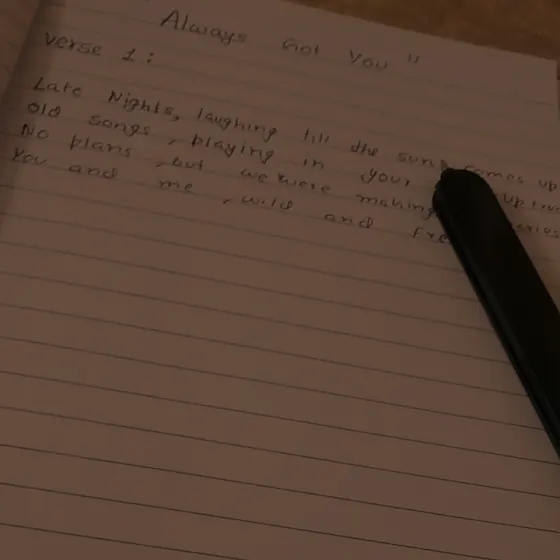 Always Got You "
verse 1 :
Late Nights, laughing till the sun comes up
old songs , playing in your
No plans , but we were making
You and me , wild and